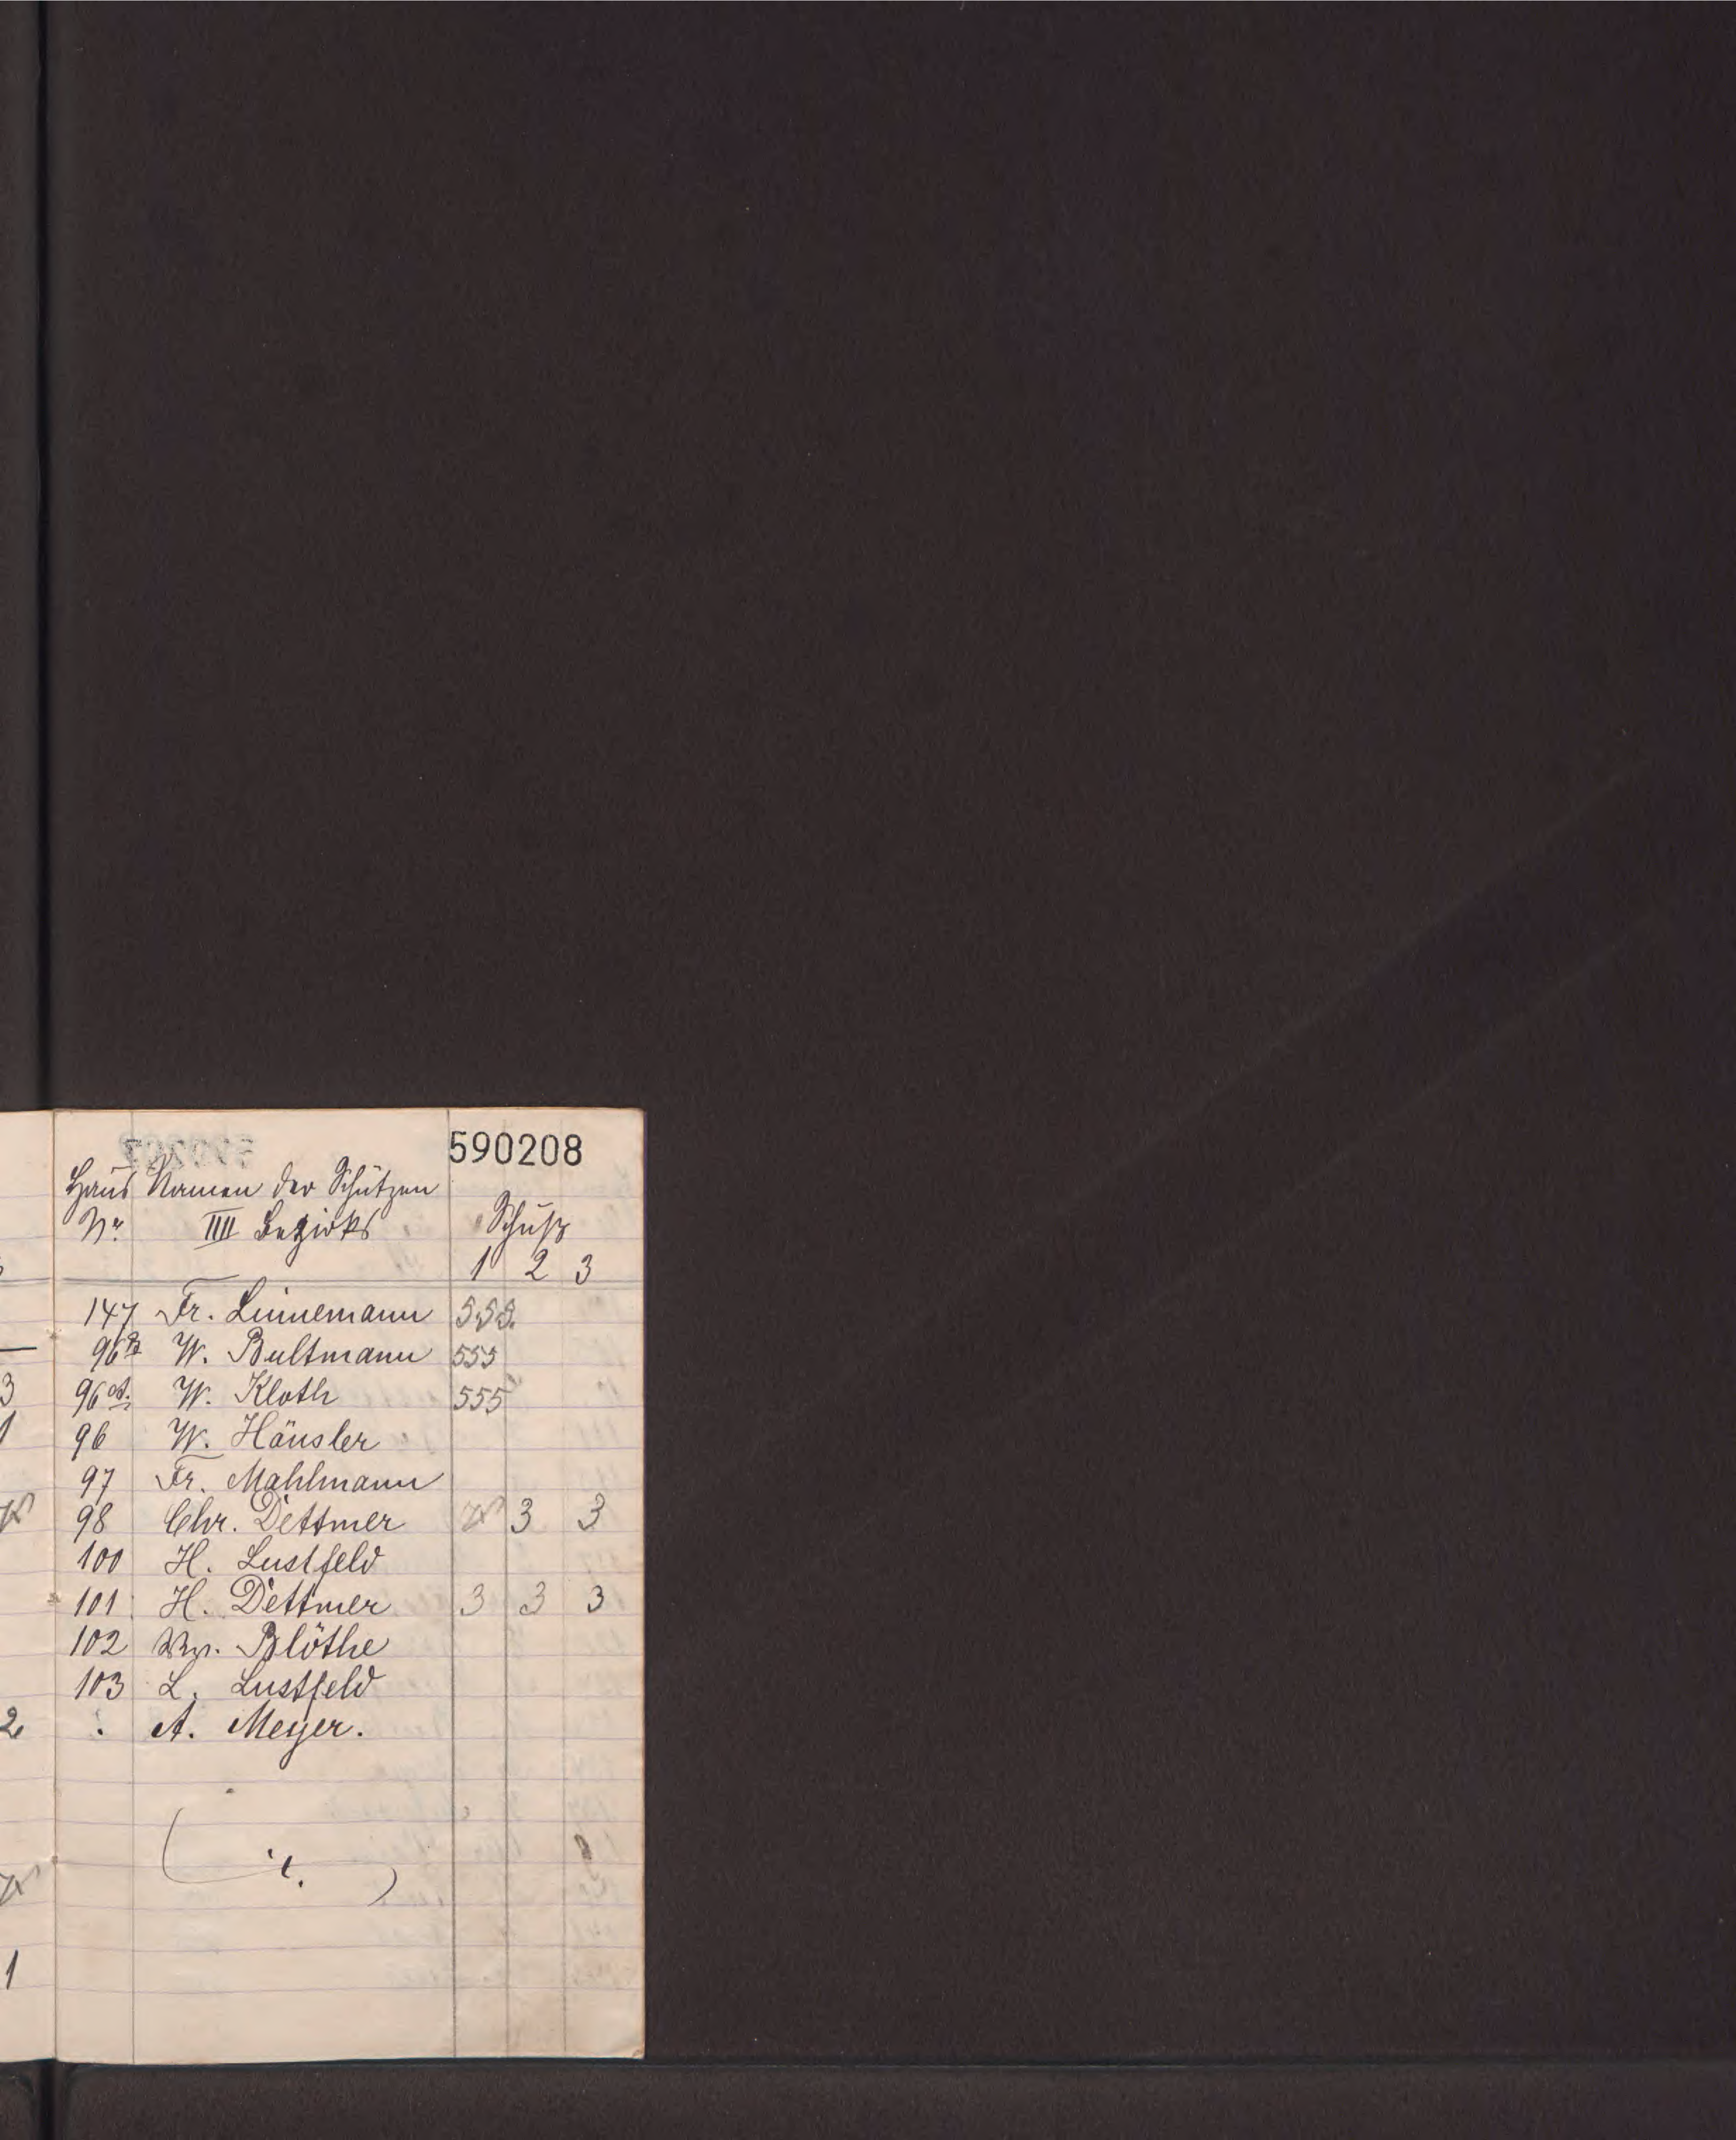 590208
Haus Namen der Schützen
Nr. IIII Bezirks Schuß
1 2 3
147 Fr. Linnemann 555.
96 W. Bultmann 555
96 W. Kloth 555
96 W. Häusler
97 Fr. Mahlmann
98 Chr. Dettmer 3 3
100 H. Lustfeld
101 H. Dettmer 3 3 3
102 Blöthe
103 L. Lustfeld
A. Meyer.
3
1
2
1